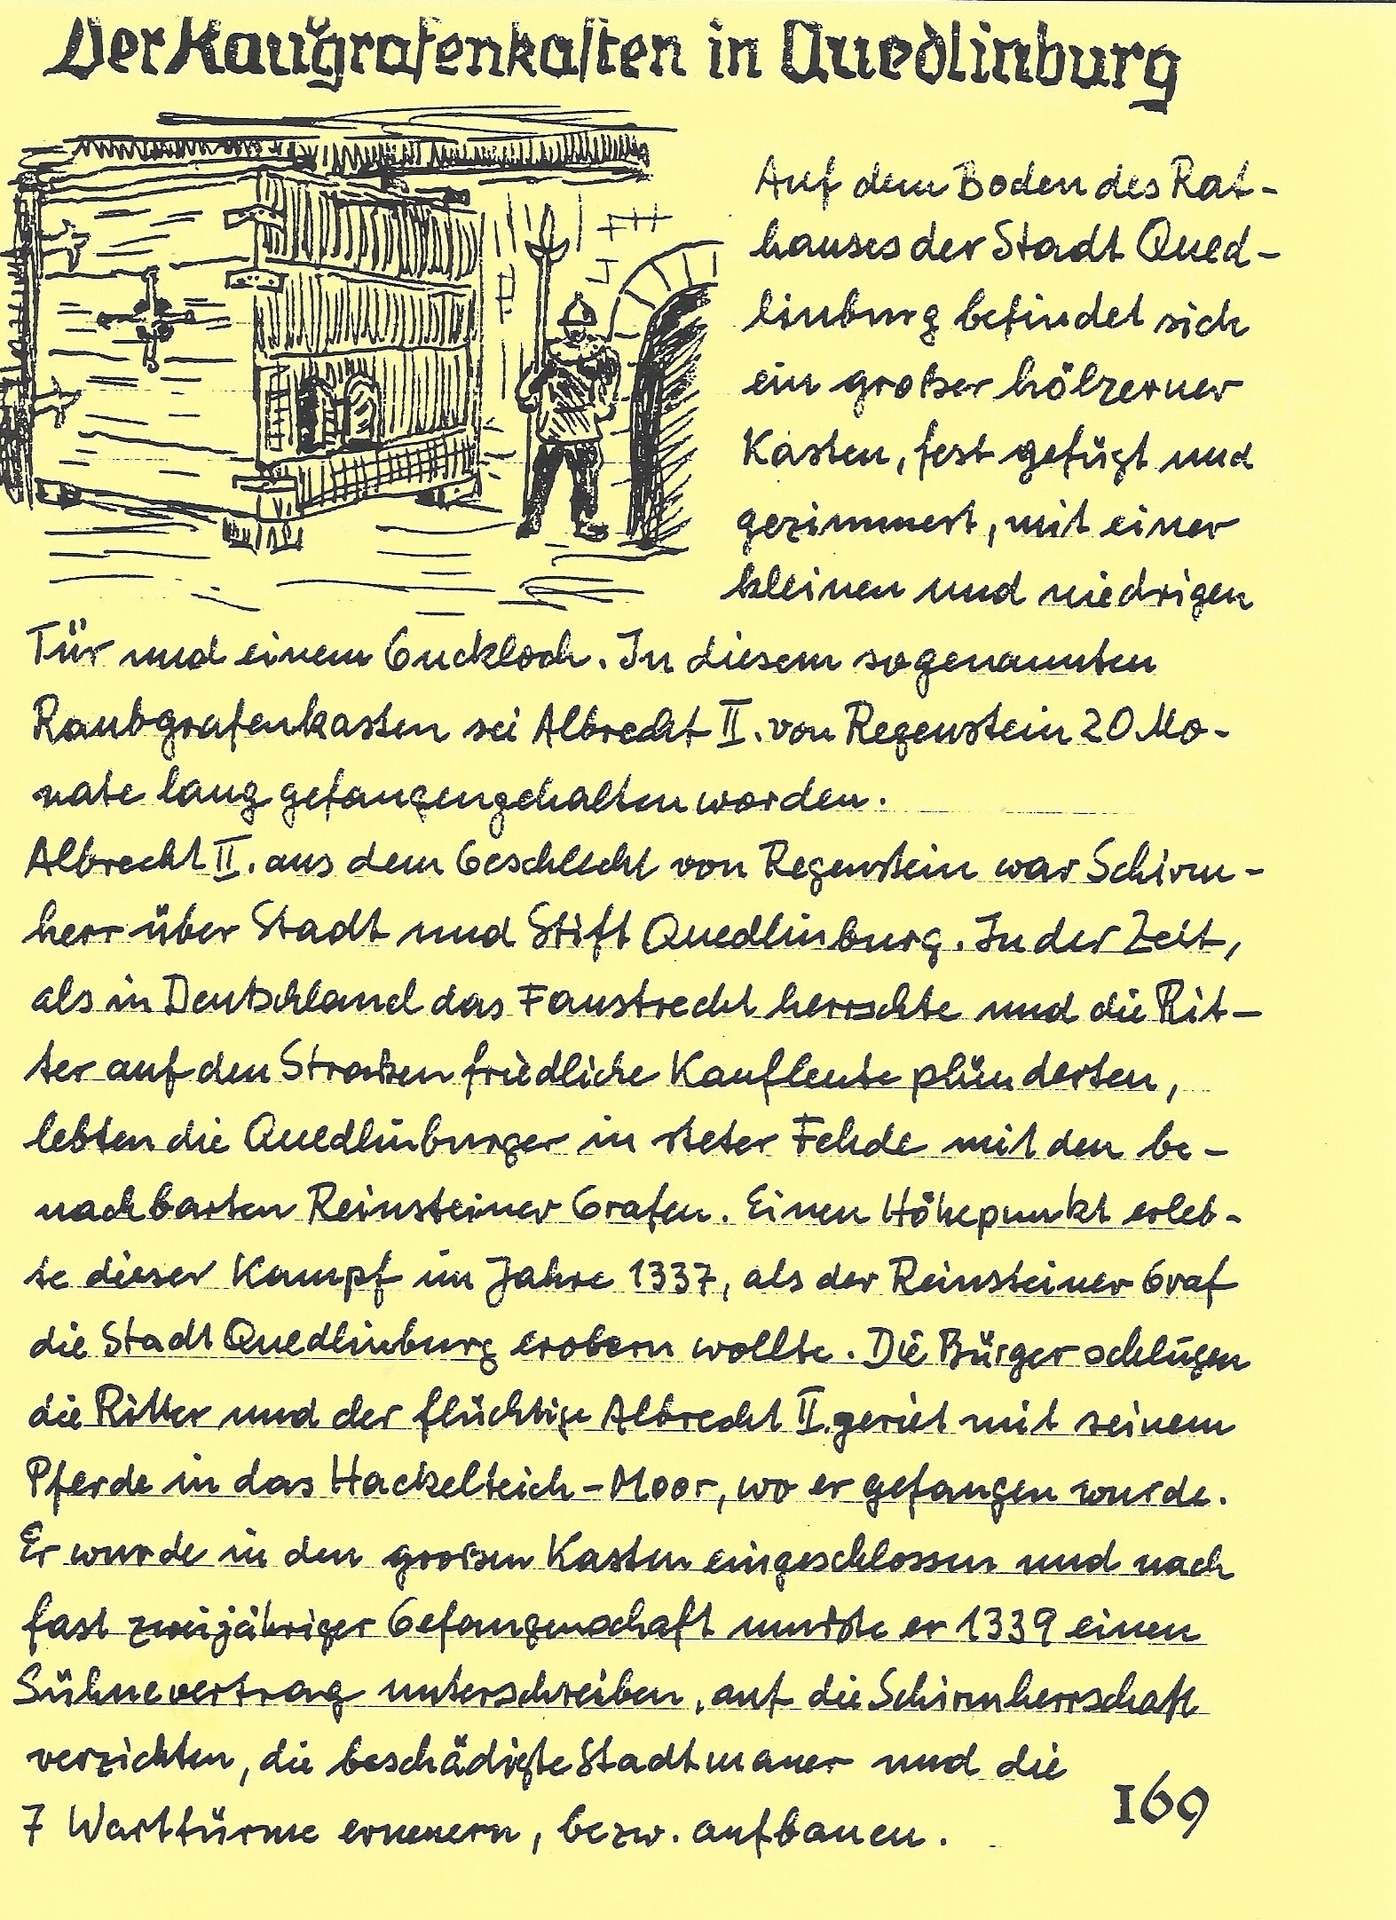 Der Raubgrafenkasten in Quedlinburg
Auf dem Boden des Rat-
hauses der Stadt Qued-
linburg befindet sich
ein großer hölzerner
Kasten, fest gefügt und
gezimmert, mit einer
kleinen und niedrigen
Tür und einem Guckloch. In diesem sogenannten
Raubgrafenkasten sei Albrecht II. von Regenstein 20 Mo-
nate lang gefangengehalten worden.
Albrecht II. aus dem Geschlecht von Regenstein war Schirm-
herr über Stadt und Stift Quedlinburg. In der Zeit,
als in Deutschland das Faustrecht herrschte und die Rit-
ter auf den Straßen friedliche Kaufleute plünderten,
lebten die Quedlinburger in steter Fehde mit den be-
nachbarten Reinsteiner Grafen. Einen Höhepunkt erleb-
te dieser Kampf im Jahre 1337, als der Reinsteiner Graf
die Stadt Quedlinburg erobern wollte. Die Bürger schlugen
die Ritter und der flüchtige Albrecht II. geriet mit seinem
Pferde in das Hackelteich-Moor, wo er gefangen wurde.
Er wurde in den großen Kasten eingeschlossen und nach
fast zweijähriger Gefangenschaft mußte er 1339 einen
Sühnevertrag unterschreiben, auf die Schirmherrschaft
verzichten, die beschädigte Stadtmauer und die
7 Warttürme erneuern, bezw. aufbauen.
169